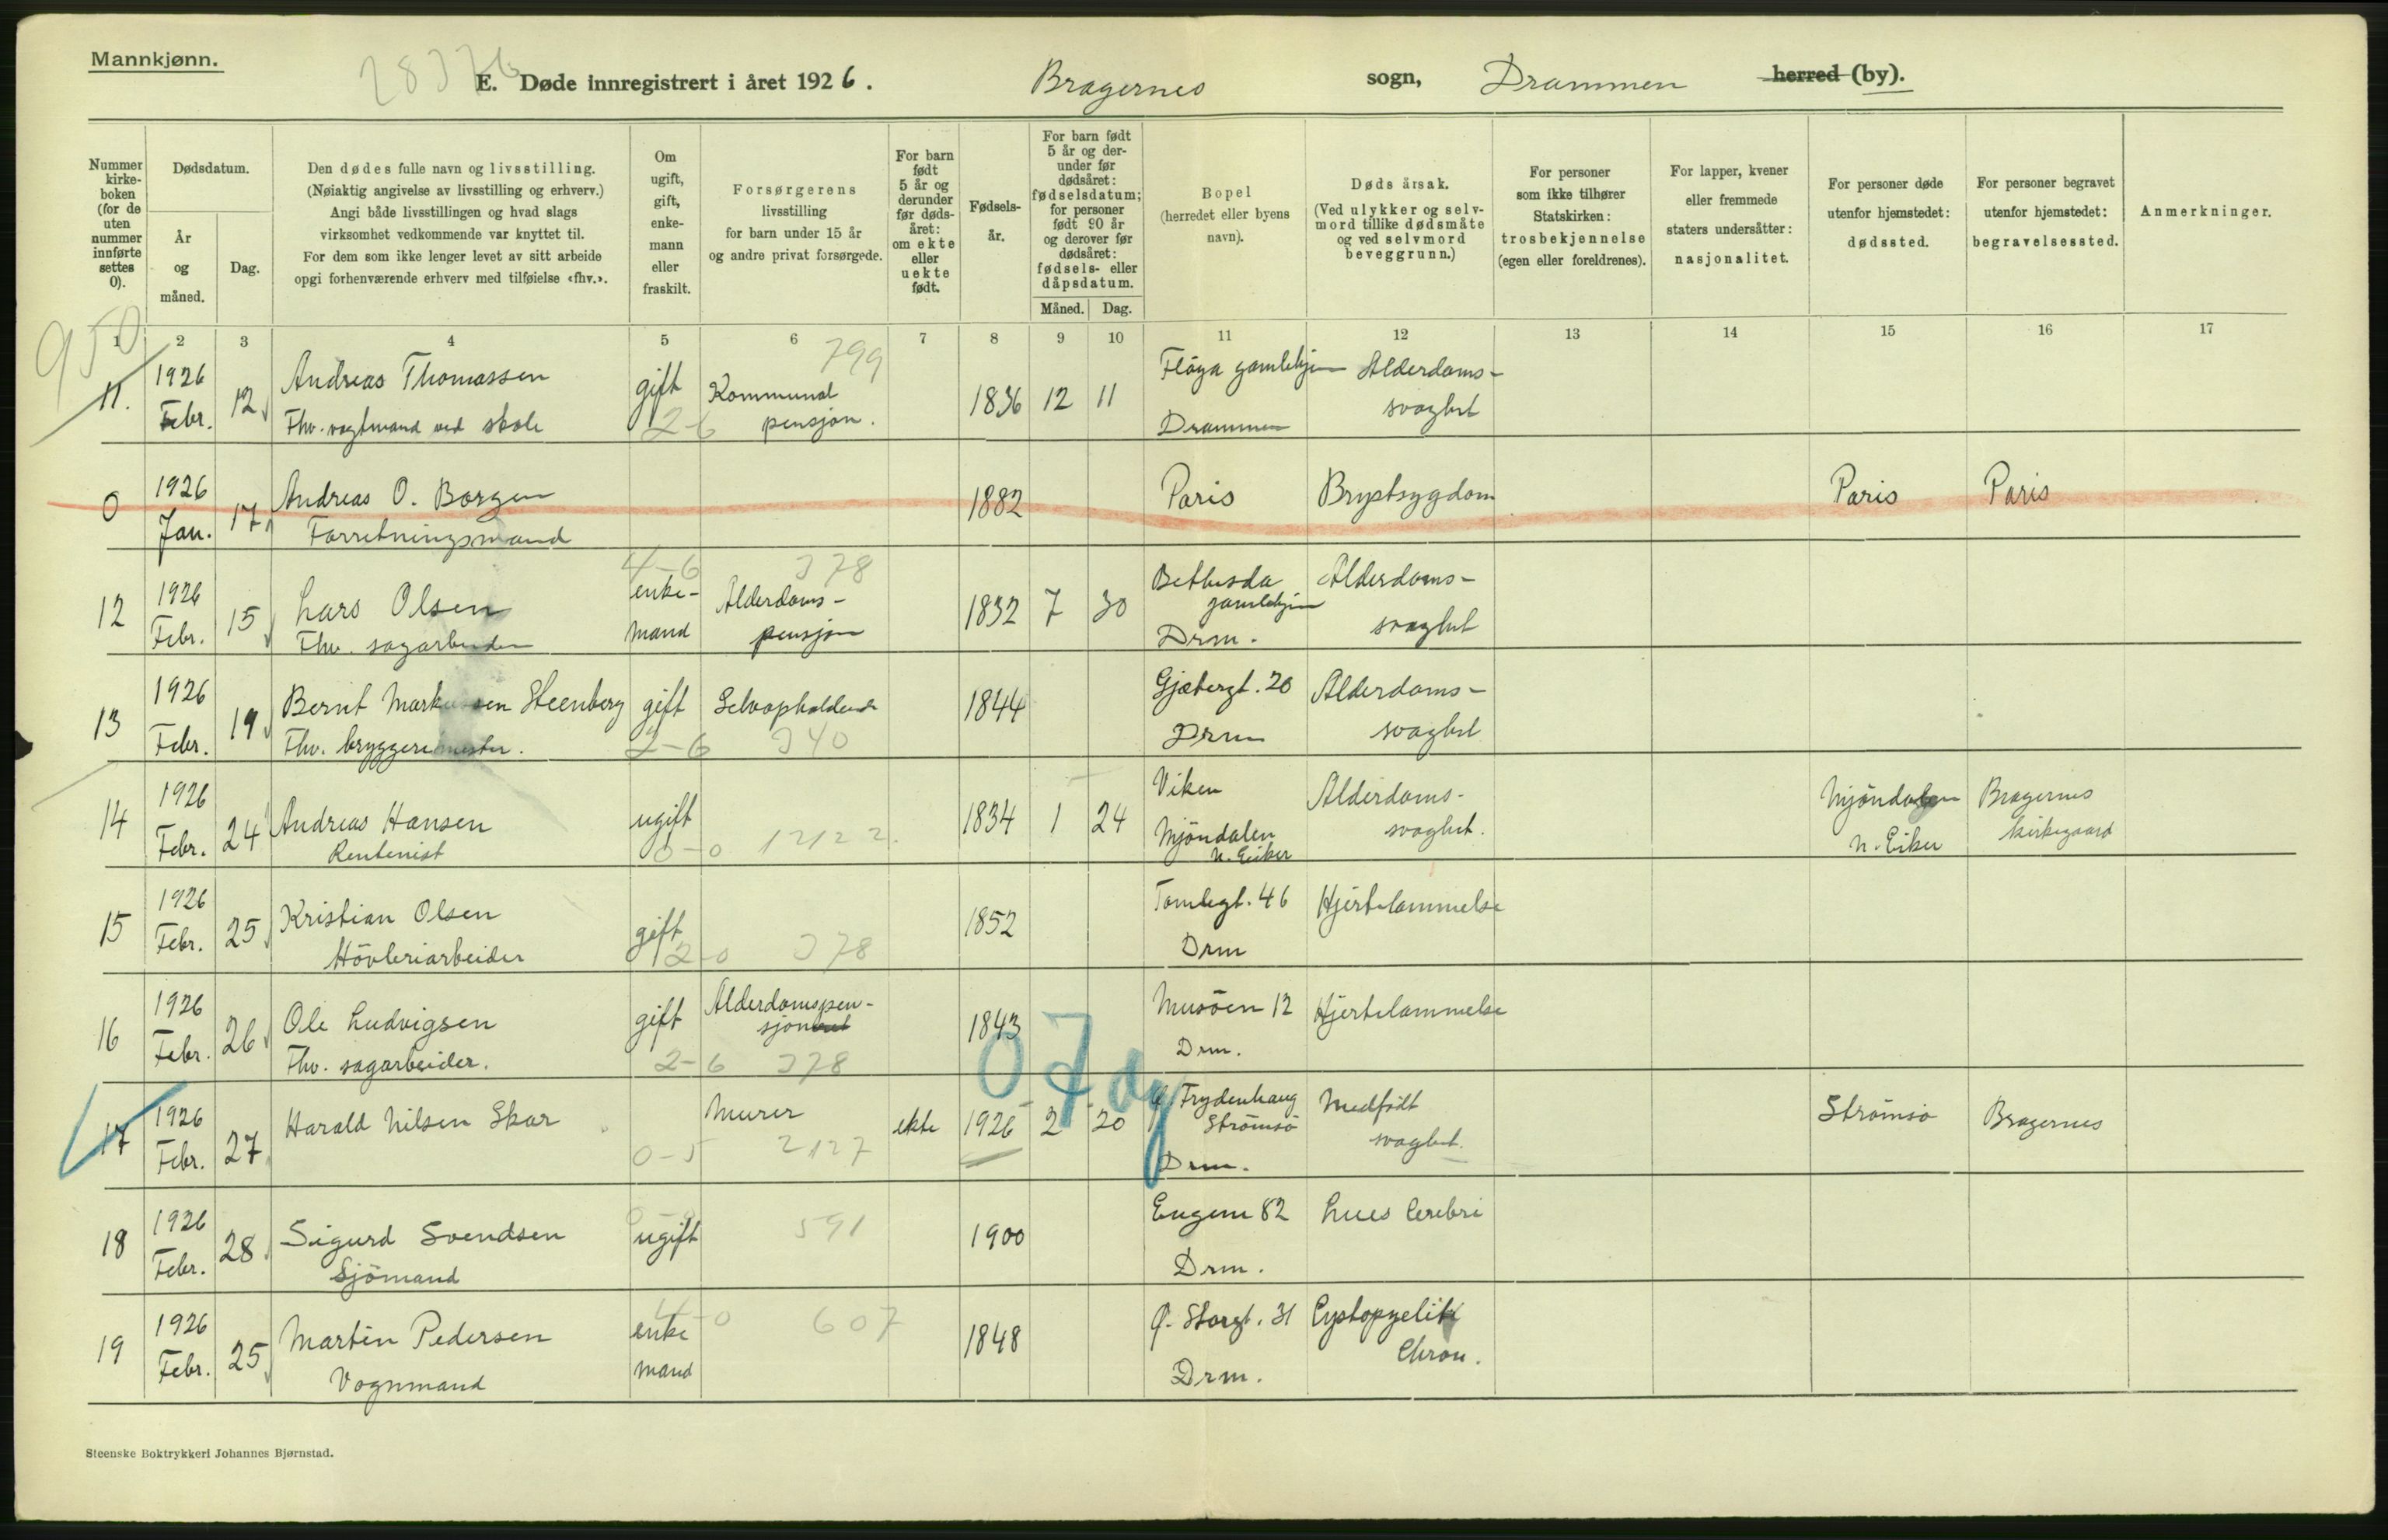 Mannkjønn.
28376
E. Døde innregistrert i året 1926. Bragernes sogn, Drammen herred (by).
Nummer kirke-boken (for de uten nummer innførte settes 0).
Dødsdatum.
År og måned.
Dag.
Den dødes fulle navn og livsstilling.
(Nøiaktig angivelse av livsstilling og erhverv.)
Angi både livsstillingen og hvad slags
virksomhet vedkommende var knyttet til.
For dem som ikke lenger levet av sitt arbeide
opgi forhenværende erhverv med tilføielse «fhv.».
Om ugift, gift, enke-mann eller fraskilt.
Forsørgerens
livsstilling
for barn under 15 år
og andre privat forsørgede.
For barn født 5 år og derunder før døds-året: om ekte eller uekte født.
Fødsels-år.
For barn født 5 år og der-under før dødsåret: fødselsdatum; for personer født 90 år og derover før dødsåret: fødsels- eller dåpsdatum.
Måned. Dag.
Bopel
(herredet eller byens
navn).
Døds årsak.
(Ved ulykker og selv-
mord tillike dødsmåte
og ved selvmord
beveggrunn.)
For personer
som ikke tilhører
Statskirken:
trosbekjennelse
(egen eller foreldrenes).
For lapper, kvener
eller fremmede
staters undersåtter:
nasjonalitet.
For personer døde
utenfor hjemstedet:
dødssted.
For personer begravet
utenfor hjemstedet:
begravelsessted.
Anmerkninger.
1 2 3 4 5 6 7 8 9 10 11 12 13 14 15 16 17
950
11. 1926 Febr. 12 Andreas Thomassen
Fhv. vagtmand ved skole
gift 2-6 799 Kommunal pensjon. 1836 12 11 Fløya gamlehjem Drammen Alderdoms-svaghet
0 1926 Jan. 17 Andreas O. Borgen
Forretningsmand
1882 Paris Brystsygdom Paris Paris
12 1926 Febr. 15 Lars Olsen
Fhv. sagarbeider
4-6 enke-mand 378 Alderdoms-pensjon 1832 7 30 Bethesda gamlehjem Drm. Alderdoms-svaghet
13 1926 Febr. 19 Bernt Markussen Steenberg
Fhv. bryggerimester.
gift 2-6 Selvopholdende 340 1844 Gjætergt. 20 Drm Alderdoms-svaghet
14 1926 Febr. 24 Andreas Hansen
Rentenist
ugift 0-0 12122. 1834 1 24 Viken Mjöndalen N. Eiker Alderdoms-svaghet. Mjöndalen N. Eiker Bragernes kirkegaard
15 1926 Febr. 25 Kristian Olsen
Hövleriarbeider
gift 2-0 378 1852 Tomtegt. 46 Drm Hjertelammelse
16 1926 Febr. 26 Ole Ludvigsen
Fhv. sagarbeider.
gift 2-6 Alderdomspen-sjon 378 1843 Musöen 12 Drm. Hjertelammelse
07 dg
17 1926 Febr. 27 Harald Nilsen Skar
0-5 Murer 2127 ekte 1926 2 20 Frydenhaug Strömsö Drm. Medfödt svaghet. Strömsö Bragernes
18 1926 Febr. 28 Sigurd Svendsen
Sjömand
ugift 591 1900 Engene 82 Drm. Lues Cerebri
19 1926 Febr. 25 Martin Pedersen
Vognmand
4-0 enke mand 607 1848 Ø. Storgt. 31 Drm. Cystopyelit Chron.
Steenske Boktrykkeri Johannes Bjørnstad.